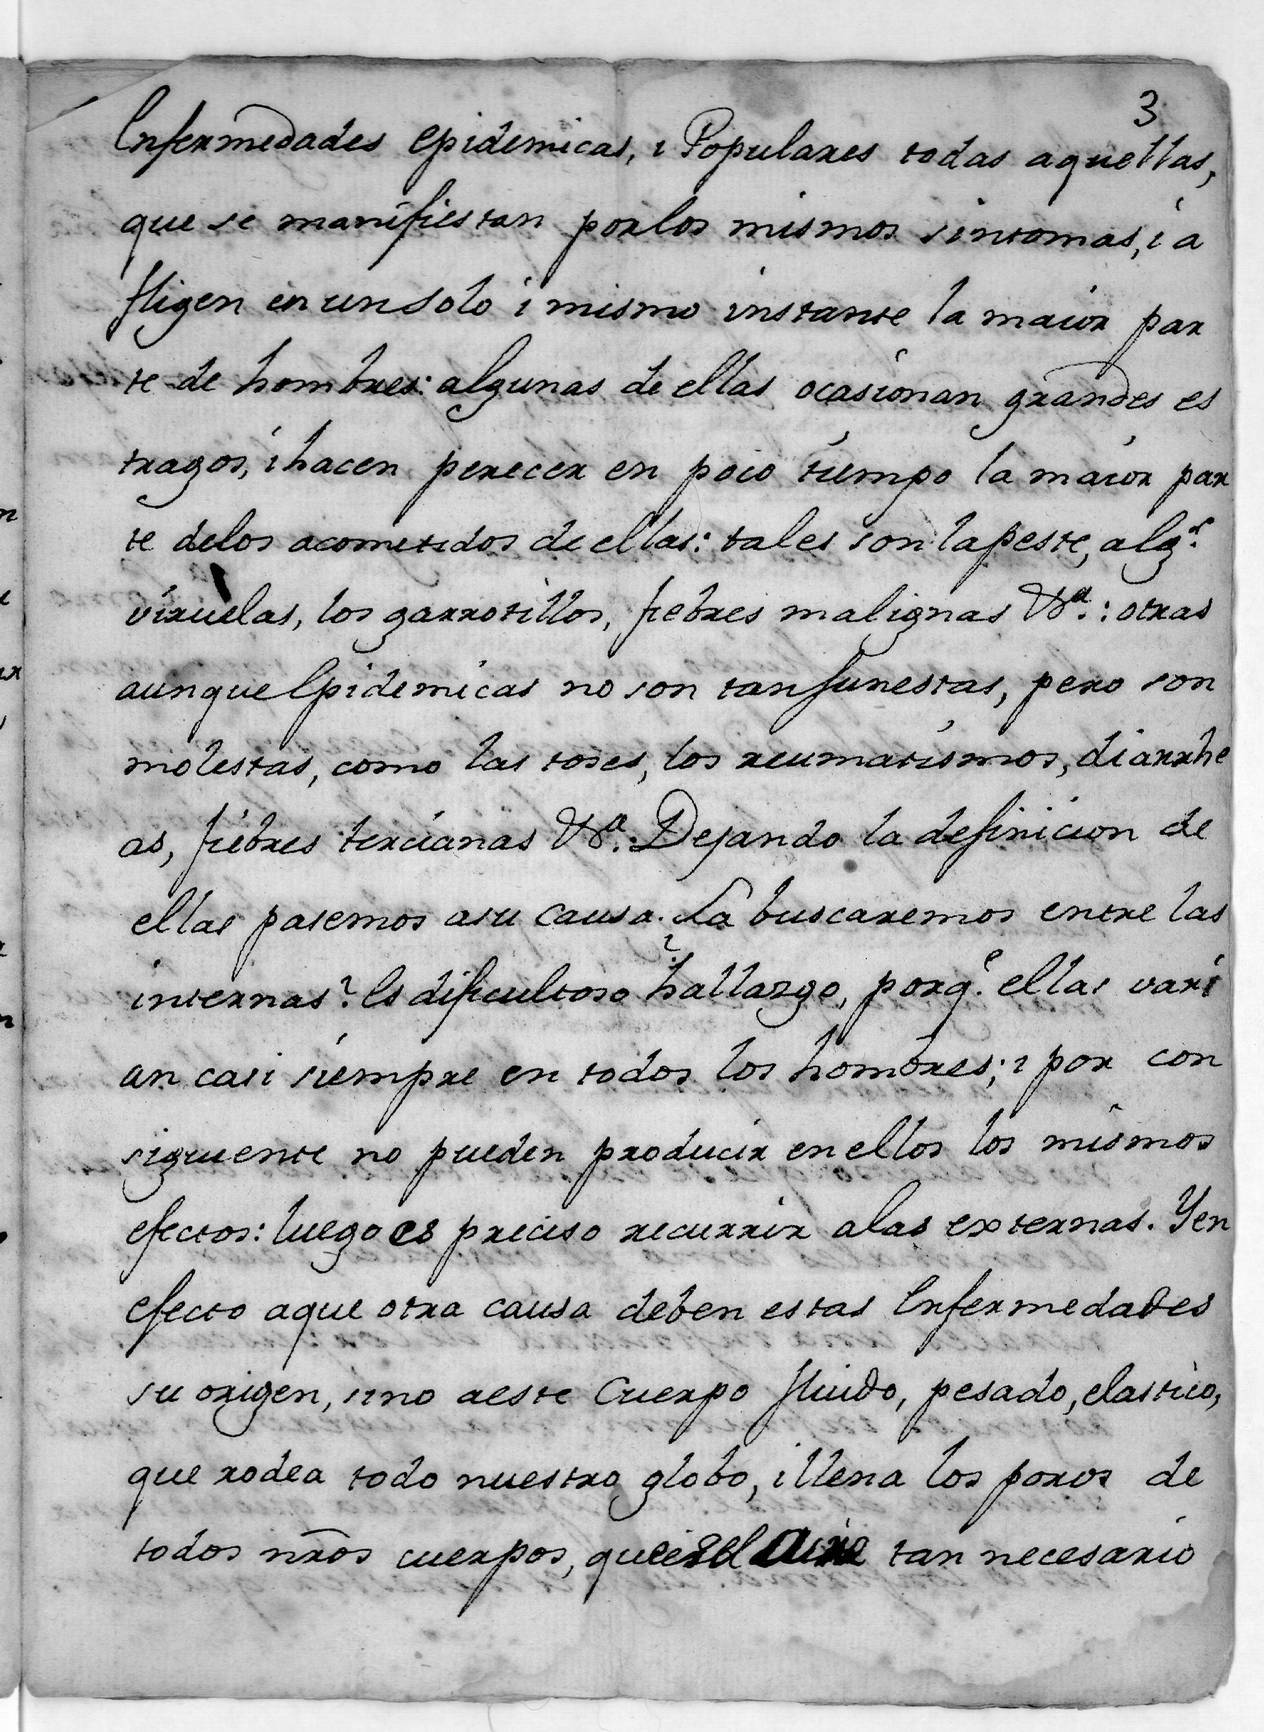 3
Enfermedades epidemicas, i Populares todas aquellas,
que se manifiestan porlos mismos sintomas, i a
fligen en un solo i mismo instante la maior par
te de hombres: algunas de ellas ocasionan grandes es
tragos, i hacen perecer en poco tiempo la maior par
te delos acometidos de ellas: tales son la peste, alg.s
viruelas, los garrotillos, fiebres malignas &a.: otras
aunque Epidemicas no son tan funestas, pero son
molestas, como las toses, los reumatismos, diarrhe
as, fiebres tercianas &a. Dejando la definicion de
ellas pasemos asu causa. La buscaremos entre las
internas? Es dificultoso hallazgo, porq.e ellas vari
an casi siempre en todos los hombres; i por con
siguente no pueden producir en ellos los mismos
efectos: luego es preciso recurrir alas externas. Y en
efecto aque otra causa deben estas Enfermedades
su origen, sino aeste Cuerpo fluido, pesado, elastico,
que rodea todo nuestro globo, i llena los poros de
todos nros cuerpos, que es el aire tan necesario